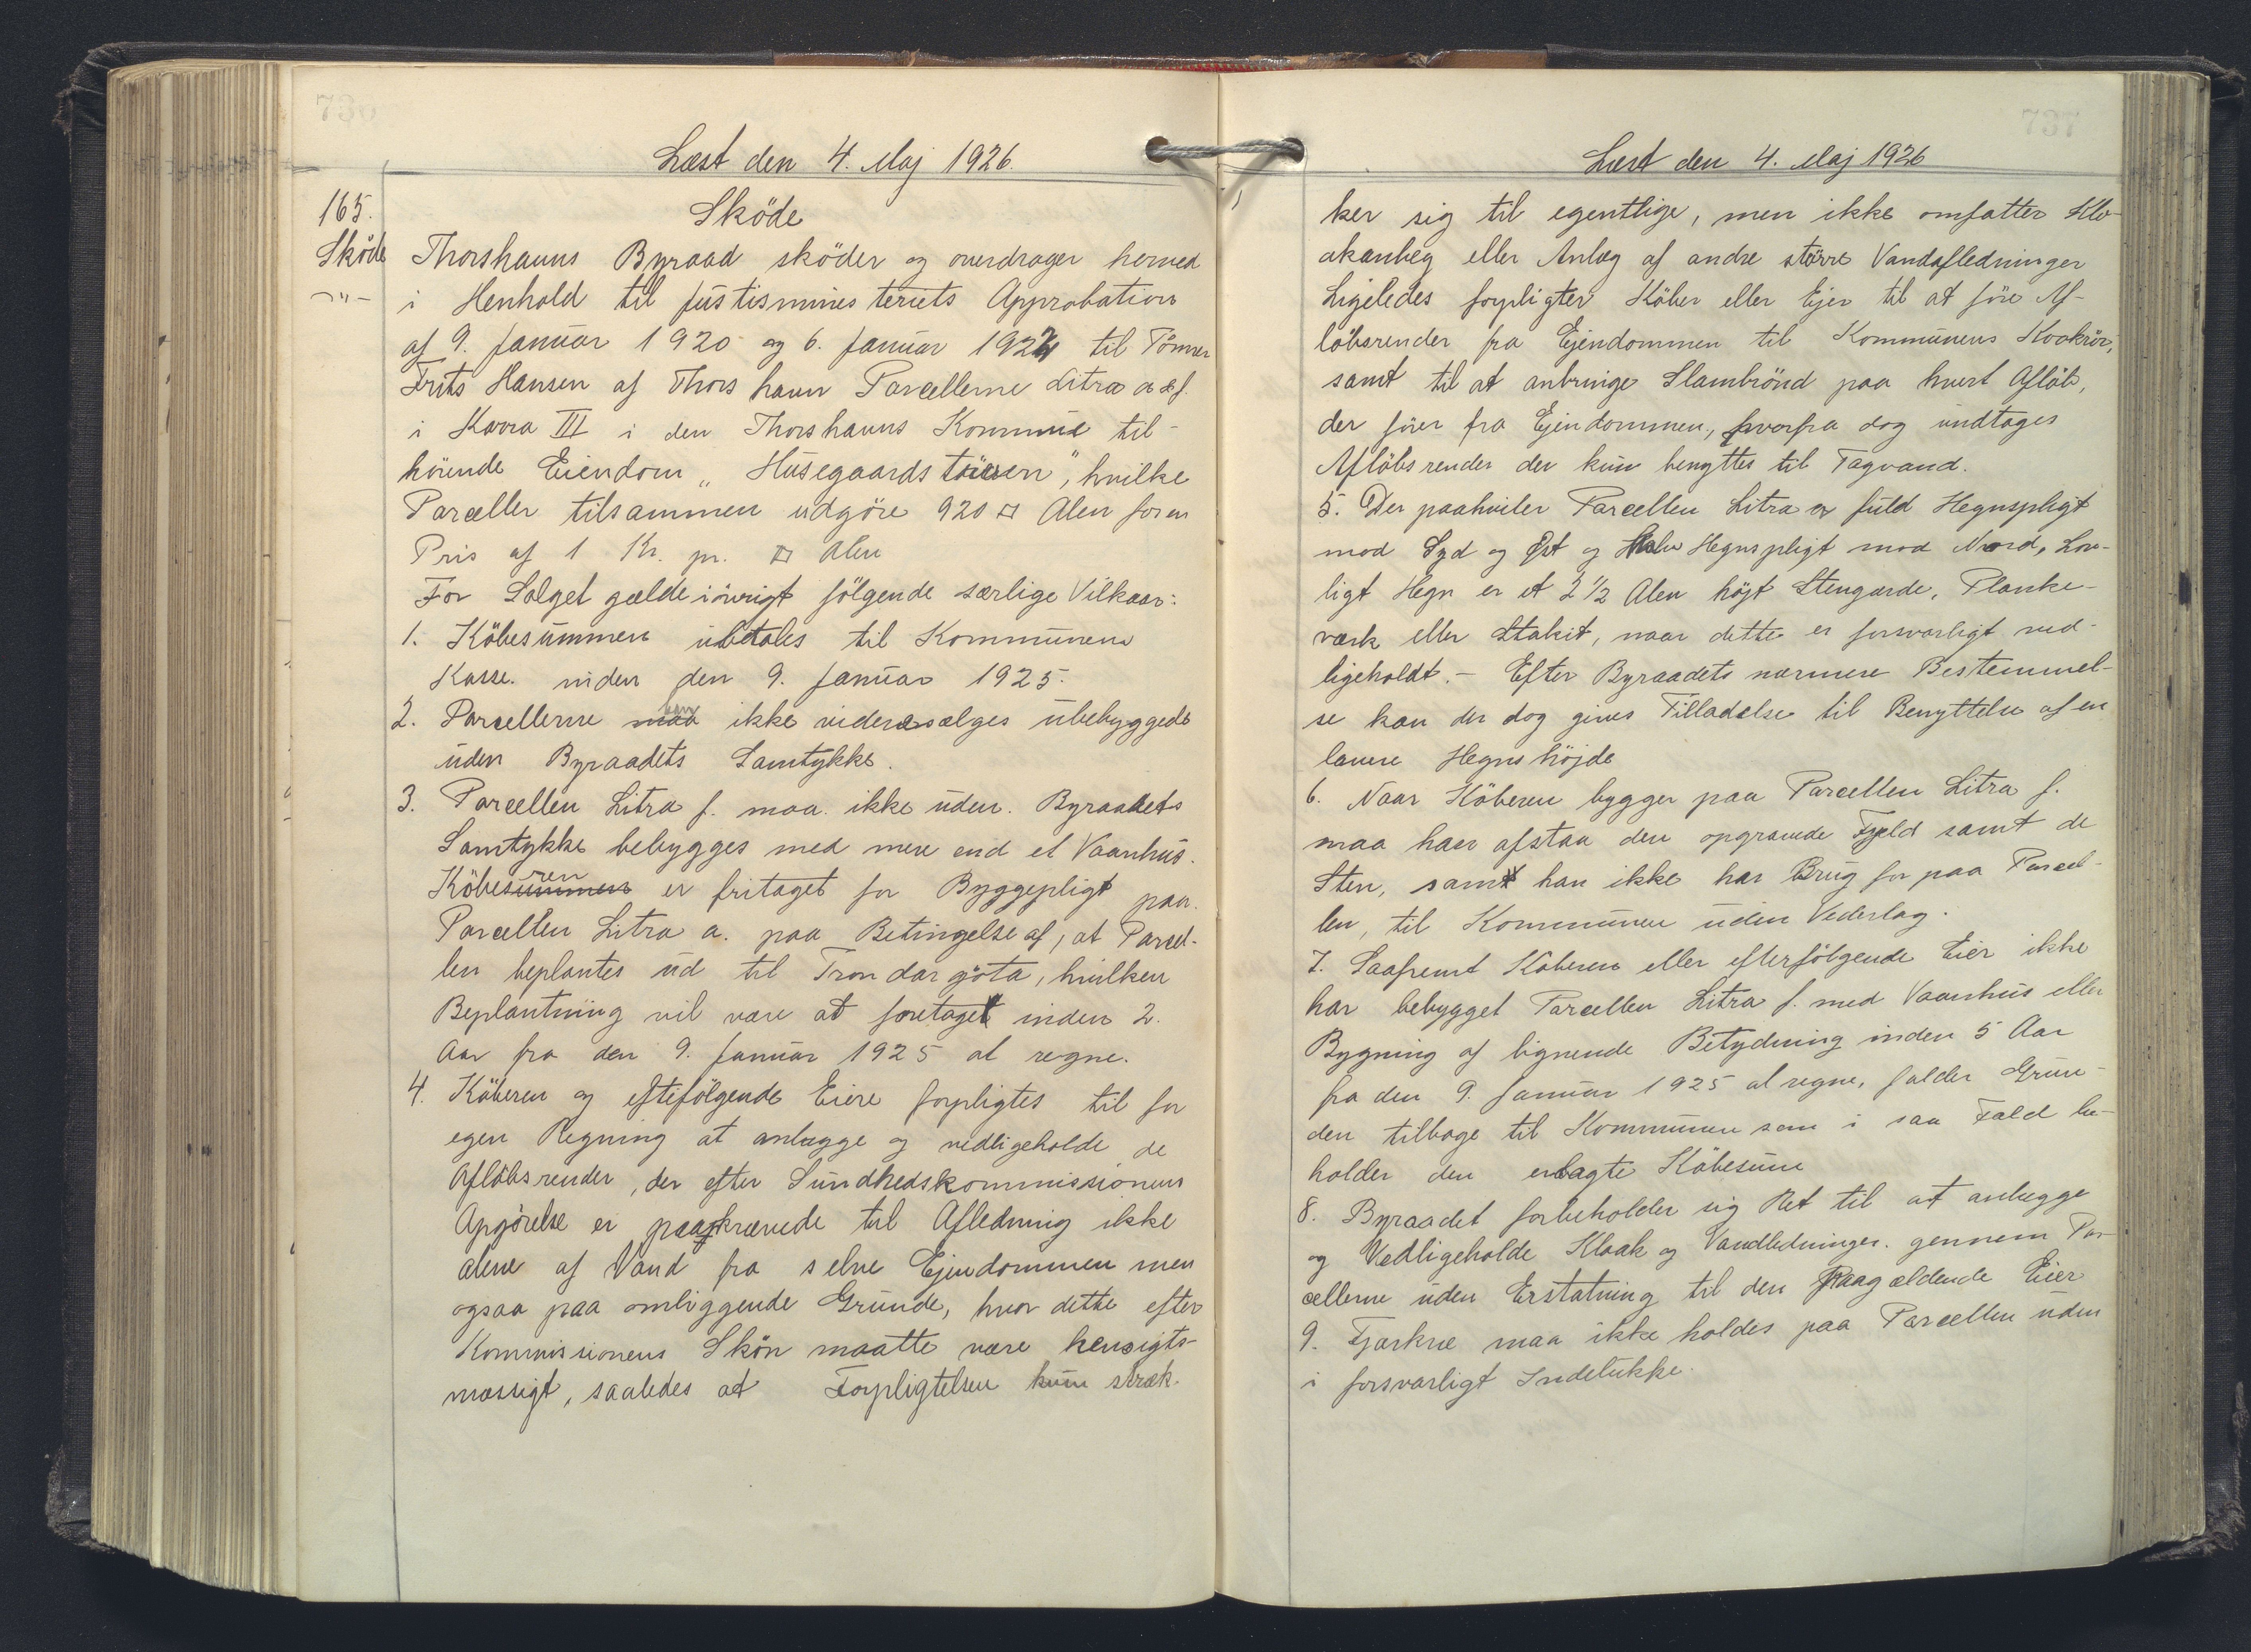 730
Læst den 4. Maj 1926.
165.
Sköde
Sköde
Thorshavns Byraad sköder og overdrager herved
i Henhold til Justisministeriets Approbation
af 9. Januar 1920 og 6. Januar 1924 til Tömrer
Frits Hansen af Thorshavn Parcellerne Litra a & f.
i Karra III i den Thorshavns Kommune til-
hörende Eiendom „Husegaardstöuen", hvilke
Parceller tilsammen udgöre 920 □ Alen for en
Pris af 1 Kr. pr. □ Alen
For Salget gælde iövrigt fölgende særlige Vilkaar:
1. Köbesummen ubetales til Kommunens
Kasse. inden den 9. Januar 1925.
2. Parcellerne maa kan ikke videresælges ubebyggede
uden Byraadets Samtykke.
3. Parcellen Litra f. maa ikke uden Byraadets
Samtykke bebygges med mere end et Vaanhus.
Köbesummen ren er fritaget for Byggepligt paa
Parcellen Litra a. paa Betingelse af, at Parcel-
len beplantes ud til Trondargöta, hvilken
Beplantning vil være at foretaget inden 2.
Aar fra den 9. Januar 1925 at regne.
4. Köberen og eftefölgende Eiere forpligtes til for
egen Regning at anlægge og vedligeholde de
Aflöbsrender, der efter Sundhedskommissionens
Afgörelse er paakrævede til Afledning ikke
alene af Vand fra selve Ejendommen men
ogsaa paa omliggende Grunde, hvor dette efter
Kommissionens Skön maatte være hensigts-
mæssigt, saaledes at Forpligtelsen kun stræk-
737
Læst den 4. Maj 1926
ker sig til egentlige, men ikke omfatter Klo-
akanlæg eller Anlæg af andre större Vandafledninger
Ligeledes forpligter Köber eller Ejer til at före Af-
löbsrender fra Ejendommen til Kommunens Kloakrör,
samt til at anbringe Slambrönd paa hvert Aflöb,
der förer fra Ejendommen, hvorfra dog undtages
Aflöbsrender der kun benyttes til Tagvand.
5. Der paahviler Parcellen Litra a fuld Hegnspligt
mod Syd og Øst og Halv Hegnspligt mod Nord, Lov-
ligt Hegn er et 2 1/2 Alen höjt Stengærde, Planke-
værk eller Stakit, naar dette er forsvarligt ved-
ligeholdt. - Efter Byraadets nærmere Bestemmel-
se kan der dog gives Tilladelse til Benyttelse af en
lavere Hegnshöjde
6. Naar Köberen bygger paa Parcellen Litra f.
maa han afstaa den opgravede Fyld samt de
Sten, samt han ikke har Brug for paa Parcel-
len, til Kommunen uden Vederlag.
7. Saafremt Köberen eller efterfölgende Eier ikke
har bebygget Parcellen Litra f. med Vaanhus eller
Bygning af lignende Betydning inden 5 Aar
fra den 9. Januar 1925 at regne, falder Grun-
den tilbage til Kommunen som i saa Fald be-
holder den erlagte Köbesum
8. Byraadet forbeholder sig Ret til at anlægge
og Vedligeholde Kloak og Vandledninger. gennem Par-
cellerne uden Erstatning til den Paagældende Eier
9. Fjærkræ maa ikke holdes paa Parcellen uden
i forsvarligt Indelukke.